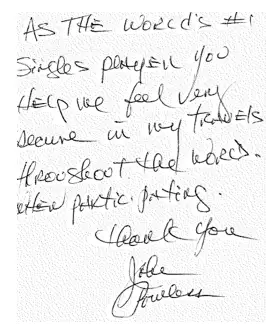 AS THE WORLD'S #1
Singles player you
Help me feel very
secure in my TRAVELS
throughout the world.
when partic.pating.
Thank you
John
Powless